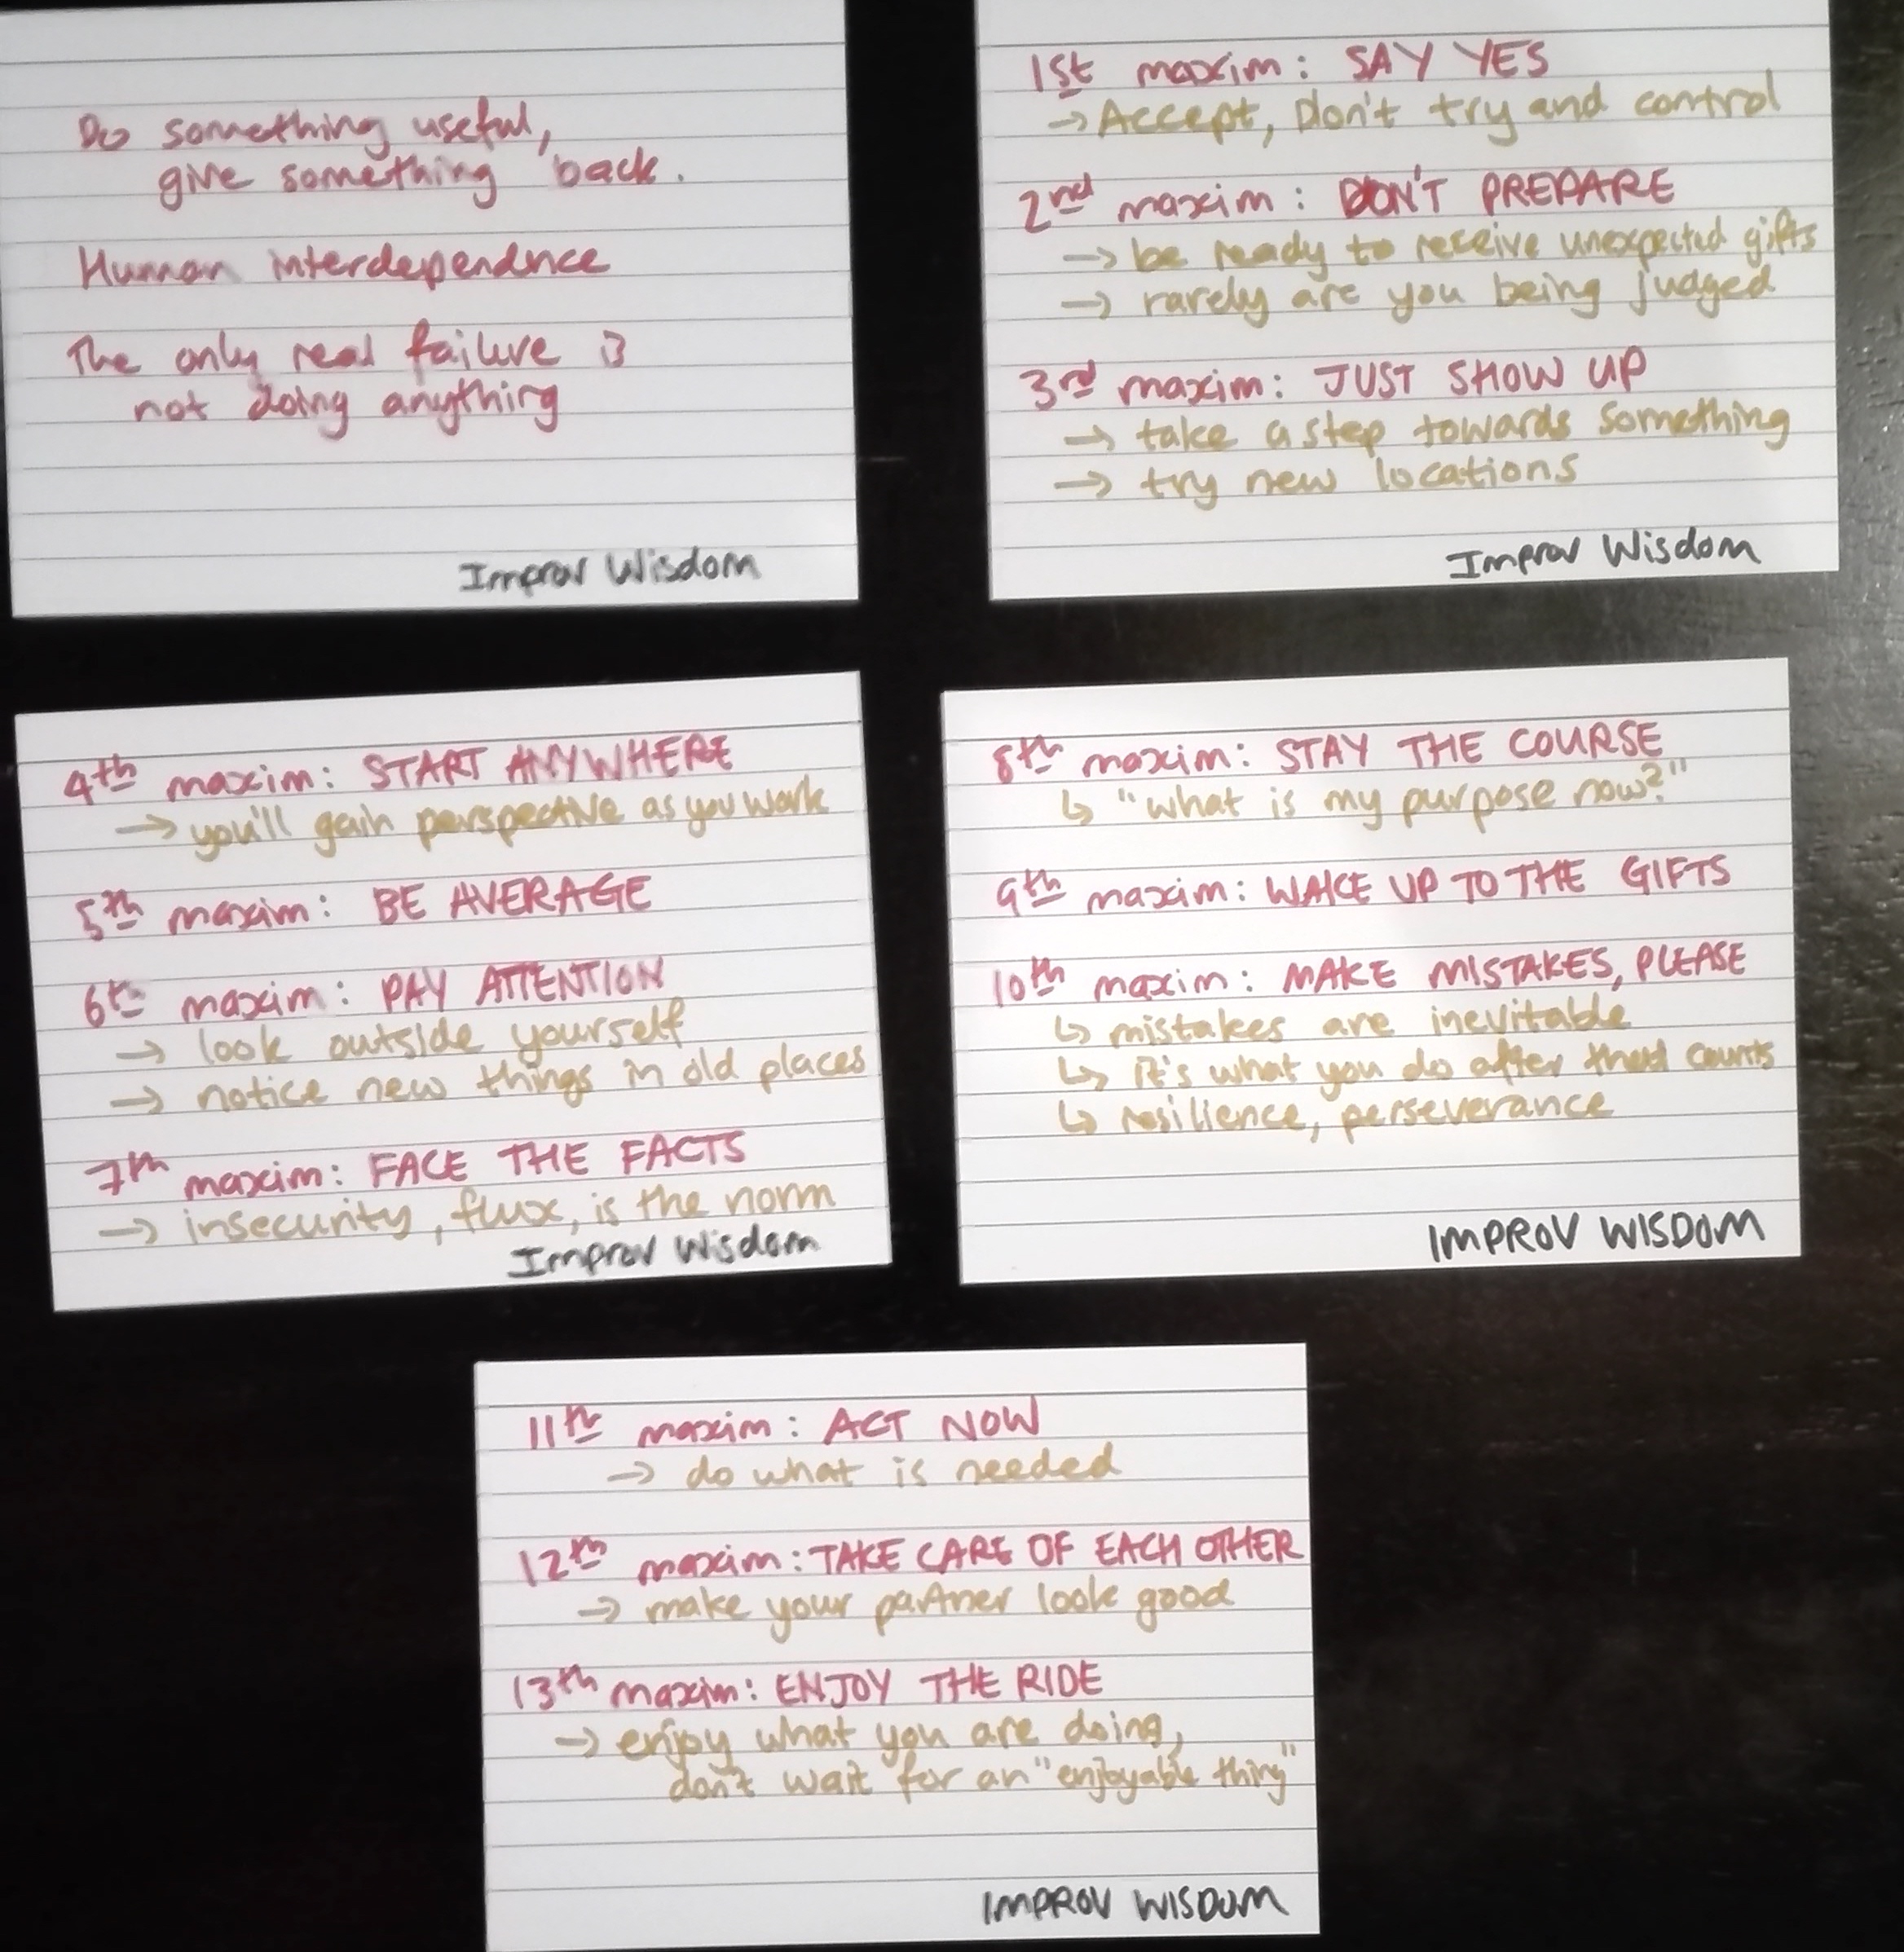 Do something useful,
give something back.
Human interdependnce
The only real failure is
not doing anything
Improv Wisdom
1st maxim: SAY YES
→ Accept, Don't try and control
2nd maxim: DON'T PREPARE
→ be ready to receive unexpected gifts
→ rarely are you being judged
3rd maxim: JUST SHOW UP
→ take a step towards something
→ try new locations
Improv Wisdom
4th maxim: START ANYWHERE
→ you'll gain perspective as you work
5th maxim: BE AVERAGE
6th maxim: PAY ATTENTION
→ look outside yourself
→ notice new things in old places
7th maxim: FACE THE FACTS
→ insecurity, flux, is the norm
Improv Wisdom
8th maxim: STAY THE COURSE
↳ "what is my purpose now?"
9th maxim: WAKE UP TO THE GIFTS
10th maxim: MAKE MISTAKES, PLEASE
↳ mistakes are inevitable
↳ it's what you do after that counts
↳ resilience, perseverance
IMPROV WISDOM
11th maxim: ACT NOW
→ do what is needed
12th maxim: TAKE CARE OF EACH OTHER
→ make your partner look good
13th maxim: ENJOY THE RIDE
→ enjoy what you are doing,
don't wait for an "enjoyable thing"
IMPROV WISDOM